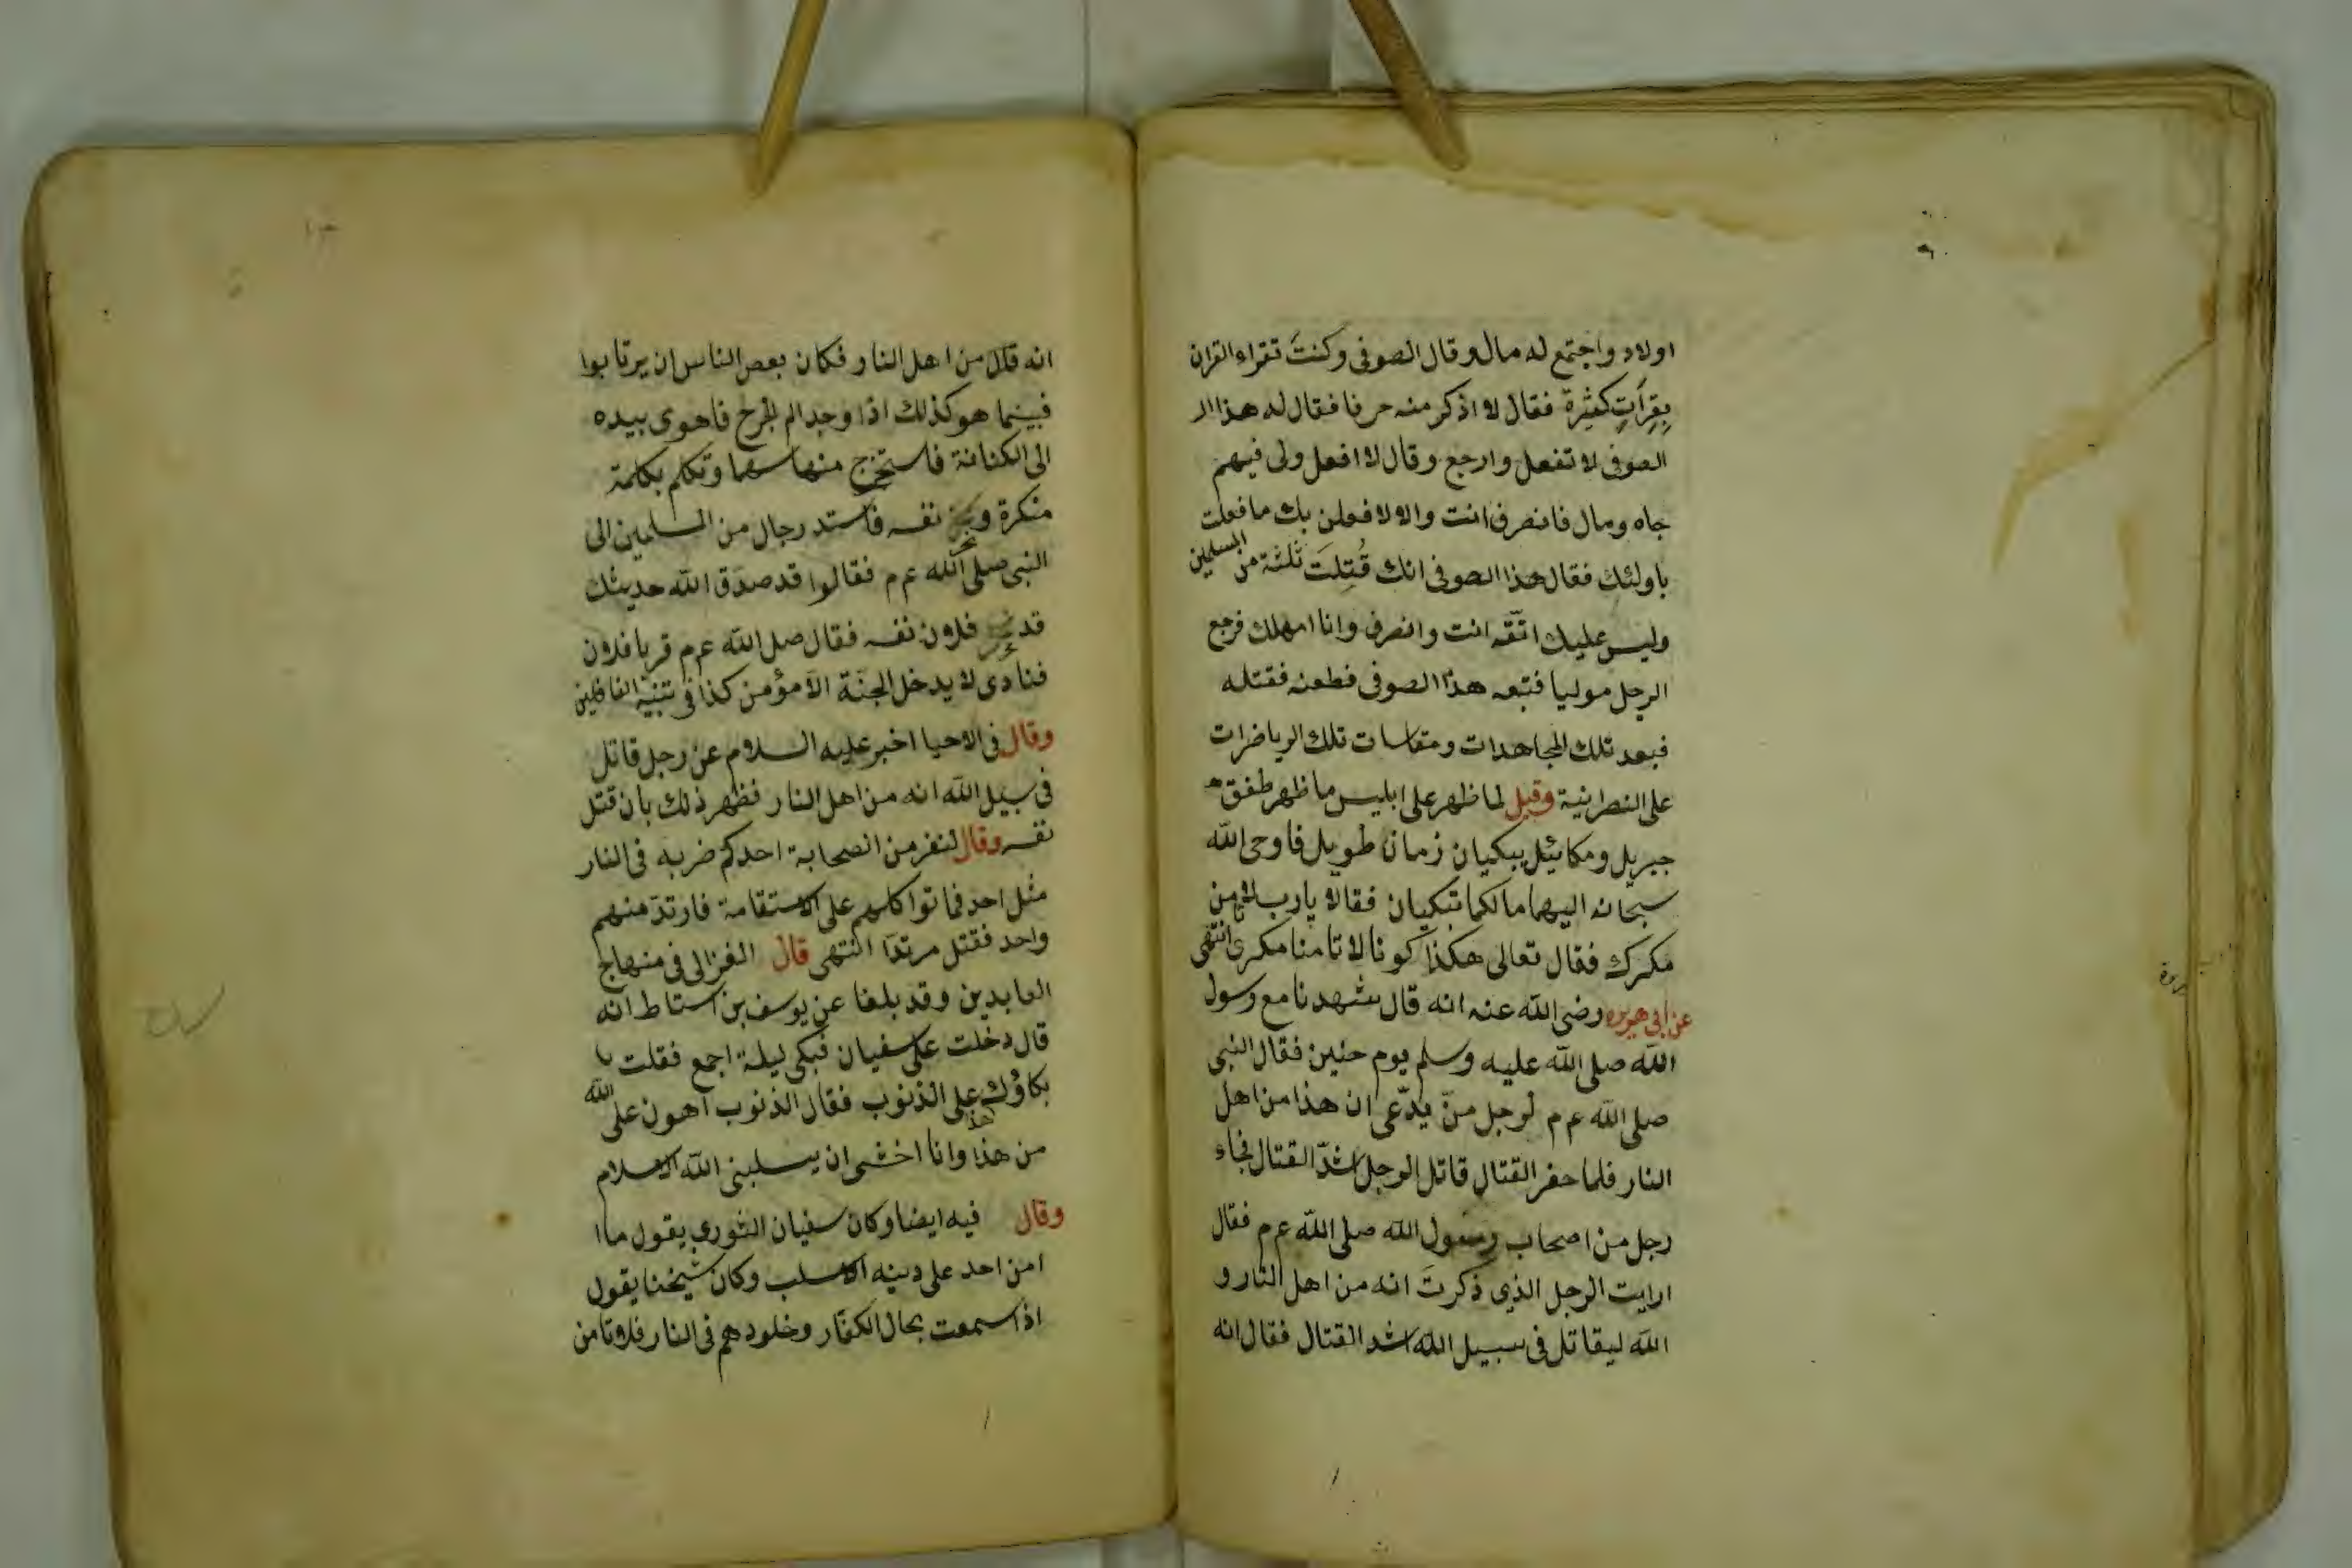 اولاد واجتمع له مال وقال الصوفى وكنتَ تقراء القران
بِقِرآتٍ كثيرة فقال لا اذكر منه حرفا فقال له هذا
الصوفى لا تفعل وارجع وقال لا افعل ولى فيهم
جاه ومال فانصرف انت والا لافعلن بك ما فعلت
باولئك فقال هذا الصوفى انك قُتِلتَ ثلثة من المسلمين
وليس عليك انت وانصرف وانا امهلك فرجع
الرجل موليا فتبعه هذا الصوفى فطعنه فقتله
فبعد تلك المجاهدات ومقاسات تلك الرياضرات
على النصرانية وقيل لما ظهر على ابليس ما ظهر طفق
جبريل ومكائيل يبكيان زمان طويل فاوحى الله
سبحانه اليهما مالكما تبكيان فقالا يا رب لا نامن
مكرك فقال تعالى هكذا كونا لا تامنا مكرى انتهى
عن ابى هريره رضى الله عنه انه قال شهدنا مع رسول
الله صلى الله عليه وسلم يوم حنين فقال النبى
صلى الله عم لرجل منّ يدّعى ان هذا من اهل
النار فلما حفر القتال قاتل الرجل اشدّ القتال فجاء
رجل من اصحاب رسول الله صلى الله عم فقال
ارايت الرجل الذى ذكرتَ انه من اهل النار و
الله ليقاتل فى سبيل الله اشد القتال فقال انه
انه قال من اهل النار فكان بعض الناس ان يرتابوا
فبينما هو كذلك اذا وجد الم الجرح فاهوى بيده
الى الكنانة فاستخرج منها سهما وتكلم بكلمة
منكرة ونحر نفسه فاستد رجال من المسلمين الى
النبى صلى الله عم فقالوا قد صدَق الله حديثك
قد نحر فلان نفسه فقال صلى الله عم قربا فلان
فنادى لا يدخل الجنّة الا مؤمن كذا فى تنبيه الغافلين
وقال فى الاحيا اخبر عليه السلام عن رجل قاتل
فى سبيل الله انه من اهل النار فظهر ذلك بان قتل
نفسه وقال لنفر من الصحابة احدكم ضربه فى النار
مثل احد فماتوا كلهم على الاستقامة فارتدّ منهم
واحد فقتل مرتدا انتهى قال الغزالى فى منهاج
العابدين وقد بلغنا عن يوسف بن استاط انه
قال دخلت على سفيان فبكى ليلة اجمع فقلت
بكاؤك هذا على الذنوب فقال الذنوب اهون على الله
من هذا وانا اخشى ان يسلبنى الله الاسلام
وقال فيه ايضا وكان سفيان الثورى يقول ما ا
امن احد على دينه الا سلب وكان شيخنا يقول
اذا سمعت بحال الكفّار وخلودهم فى النار فلا تامن